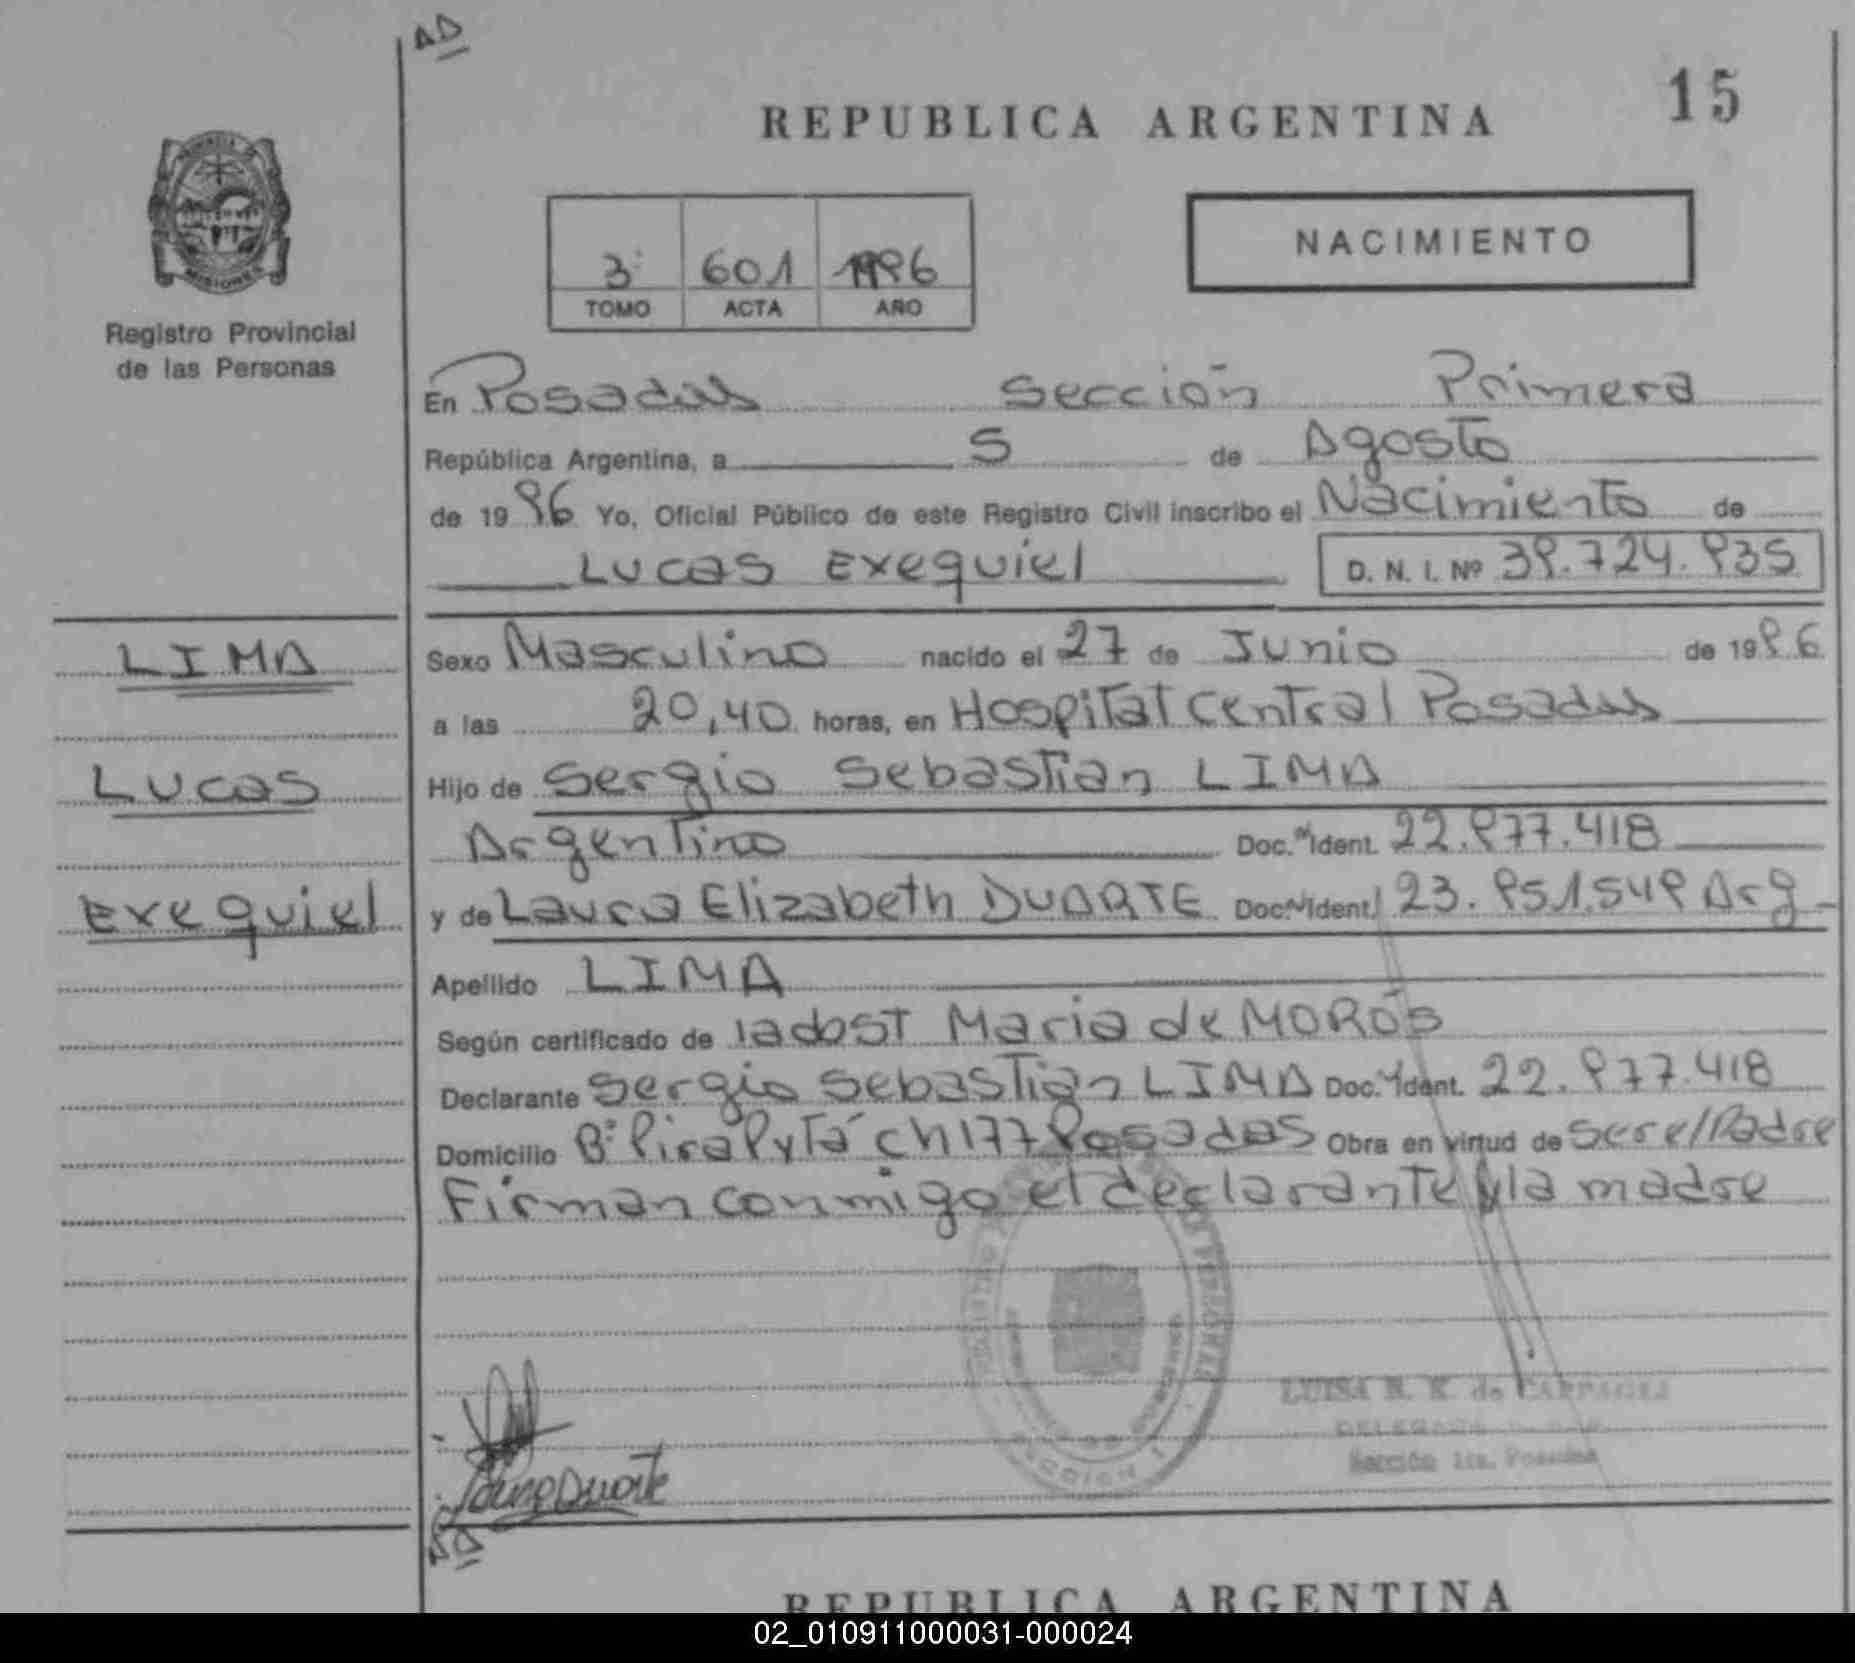 AD
REPUBLICA ARGENTINA
15
PROVINCIA DE
MISIONES
Registro Provincial
de las Personas
3º 601 1996
TOMO ACTA AÑO
NACIMIENTO
En Posadas Sección Primera
República Argentina, a 5 de Agosto
de 1996 Yo, Oficial Público de este Registro Civil inscribo el Nacimiento de
Lucas Exequiel D. N. I. Nº 39.724.935
LIMA
Lucas
Exequiel
Sexo Masculino nacido el 27 de Junio de 1996
a las 20,40 horas, en Hospital Central Posadas
Hijo de Sergio Sebastian LIMA
Argentino Doc. Ident. 22.977.418
y de Laura Elizabeth DUARTE Doc. Ident. 23.951.549 Arg
Apellido LIMA
Según certificado de la obst Maria de MOROS
Declarante Sergio Sebastian LIMA Doc. Ident. 22.977.418
Domicilio Bº Pira Pytá ch 177 Posadas Obra en virtud de ser el Padre
Firman conmigo el declarante y la madre
LUISA N. K. de
Sección 1ra. Posadas
Laura Duarte
AD
REPUBLICA ARGENTINA
02_010911000031-000024